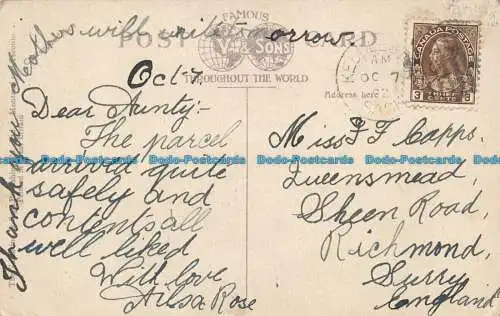 Mother will write tomorrow.
FAMOUS
POST CARD
V & SONS
THROUGHOUT THE WORLD
Oct 7
Dear Aunty:-
The parcel
arrived quite
safely and
contents all
well liked
With love
Ailsa Rose
Thank you
CANADA POSTAGE
3 CENTS 3
AM
OC 7
Address here
Miss F F Capps.
Queensmead,
Sheen Road,
Richmond,
Surry,
England
Dodo-Postcards
Dodo-Postcards
Dodo-Postcards
Dodo-Postcards
Dodo-Postcards
Dodo-Postcards